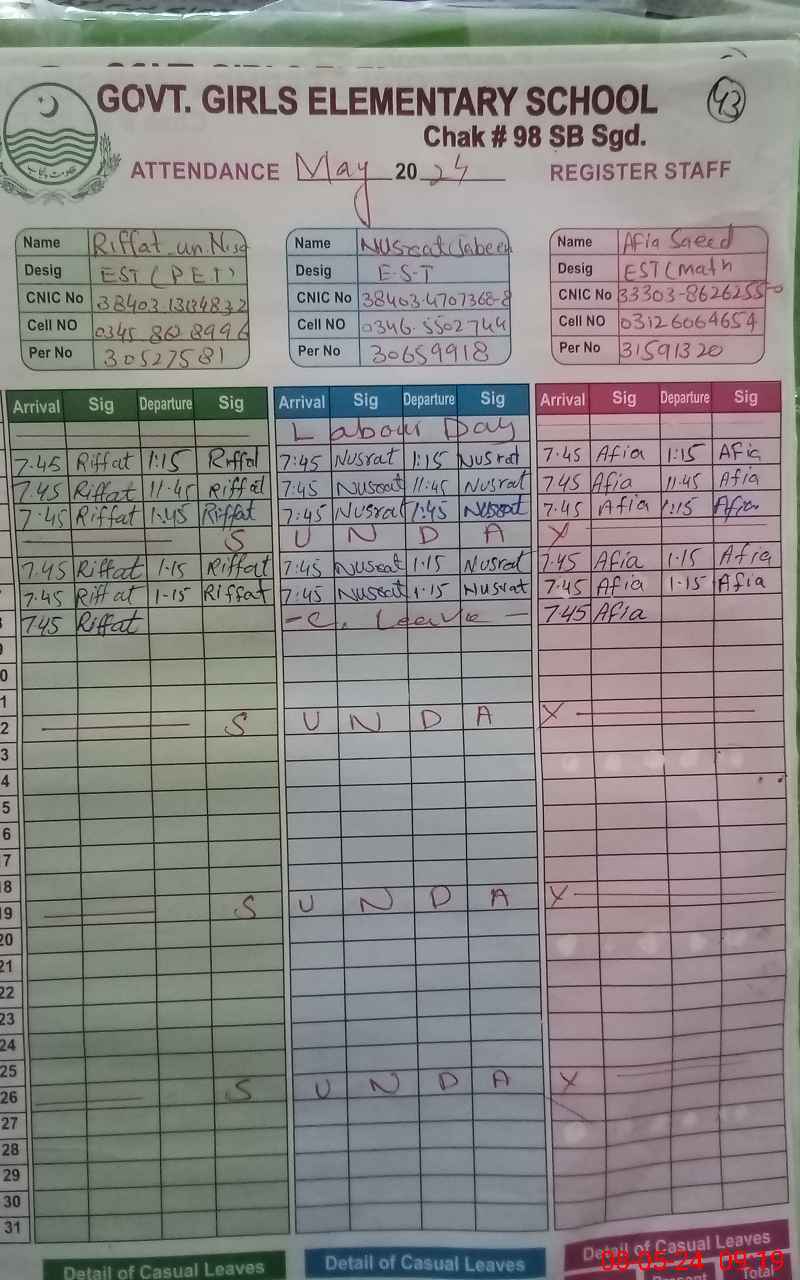 GOVT. GIRLS ELEMENTARY SCHOOL 43
Chak # 98 SB Sgd.
ATTENDANCE May 2024 REGISTER STAFF
Name Riffat un Nisa Name Nusrat Jabeen Name Afia Saeed
Desig EST (PET) Desig E-S-T Desig EST (Math
CNIC No CNIC No 38403-4707368-8 CNIC No 33303-8626255-0
Cell NO 0345 862 8996 Cell NO 0346-5502744 Cell NO 03126064654
Per No 30527581 Per No 30659918 Per No 31591320
Arrival Sig Departure Sig Arrival Sig Departure Sig Arrival Sig Departure Sig
Labour Day
7.45 Riffat 1:15 Riffat 7:45 Nusrat 1:15 Nusrat 7.45 Afia 1:15 Afia
7.45 Riffat 11:45 Riffat 7:45 Nusrat 11:45 Nusrat 745 Afia 11.45 Afia
7.45 Riffat 1:45 Riffat 7:45 Nusrat 1:45 Nusrat 7.45 Afia 1:15 Afia
S U N D A Y
7.45 Riffat 1.15 Riffat 7:45 Nusrat 1.15 Nusrat 7.45 Afia 1.15 Afia
7.45 Riffat 1-15 Riffat 7:45 Nusrat 1.15 Nusrat 7.45 Afia 1.15 Afia
8 745 Riffat -C. Leave- 745 Afia
9
0
1
2 S U N D A Y
3
4
5
6
7
18
19 S U N D A Y
20
21
22
23
24
25
26 S U N D A Y
27
28
29
30
31
Detail of Casual Leaves Detail of Casual Leaves Detail of Casual Leaves
08-05-24 09:19
Total